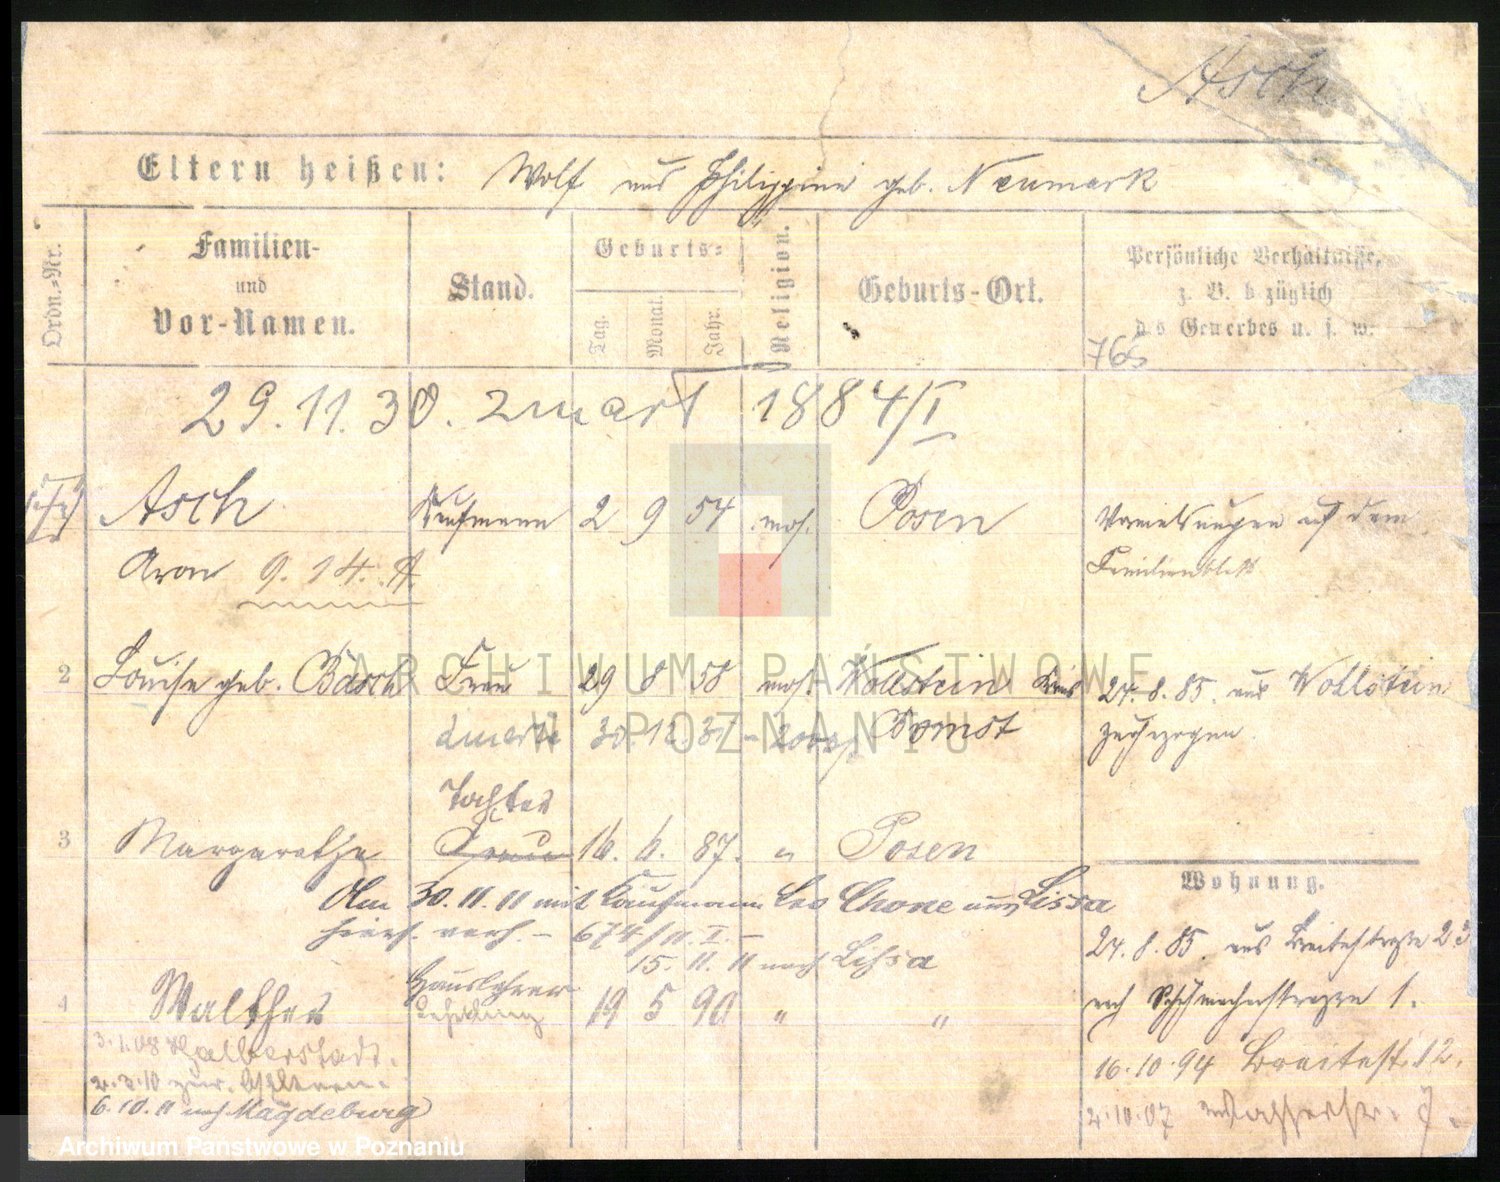 Asch
Eltern heißen: Wolf und Philippine geb. Neumark
Ordn.-Nr.
Familien-
und
Vor-Namen.
Stand.
Geburts-
Tag.
Monat.
Jahr.
Religion.
Geburts-Ort.
Persönliche Verhältnisse,
z. B. bezüglich
des Gewerbes u. s. w.
29.11.30. zmarł 1884/I
Asch Kaufmann 2 9 54 mos. Posen
auf dem
Aron 9. 14. A.
Familienblatt
2 Louise geb. Basch Frau 29 8 58 mos. Wollstein Kreis
Bomst
24.8.85. aus Wollstein
zugezogen.
Tochter
3 Margarethe Frau 16. 6. 87. " Posen
Am 30.11.11 mit Kaufmann Leo Chone aus Lissa
hiers. verh. - 674/11.I. -
15.11.11 nach Lissa
Wohnung.
24.8.85. aus Breitestraße 23
nach Schuhmacherstraße 1.
16.10.94 Breitestr. 12.
2.10.07 Wasserstr. 7.
4 Walther Lehrling 19 5 90 " "
3.1.08 Halberstadt.
2.2.10 zur. Eltern.
6.10.11 nach Magdeburg
ARCHIWUM PAŃSTWOWE
W POZNANIU
Archiwum Państwowe w Poznaniu